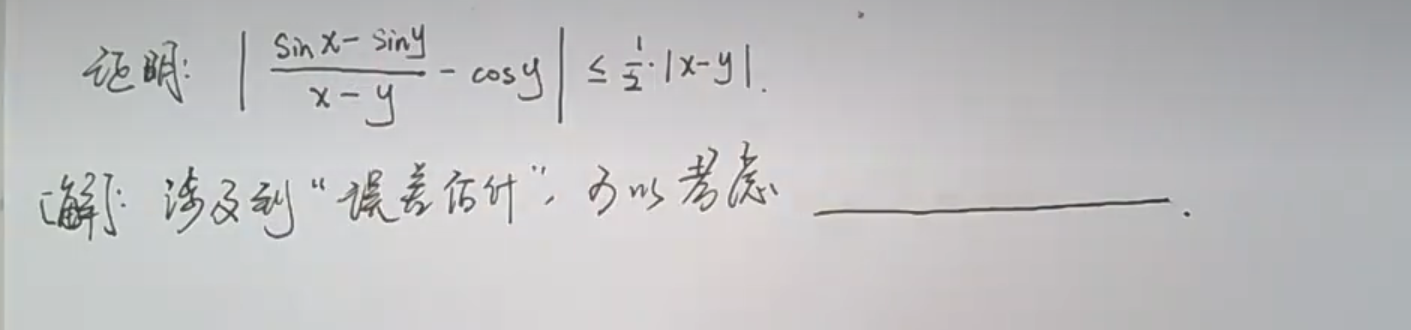 证明: | (sin x - sin y)/(x - y) - cos y | ≤ 1/2 · |x - y|.
解: 涉及到“误差估计”, 可以考虑 ________.